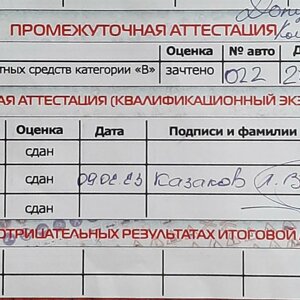 ПРОМЕЖУТОЧНАЯ АТТЕСТАЦИЯ
Оценка № авто
тных средств категории «В» зачтено 022
АЯ АТТЕСТАЦИЯ (КВАЛИФИКАЦИОННЫЙ ЭКЗ
Оценка Дата Подписи и фамилии
сдан
сдан 09.02.23 Казаков
сдан
ОТРИЦАТЕЛЬНЫХ РЕЗУЛЬТАТАХ ИТОГОВОЙ